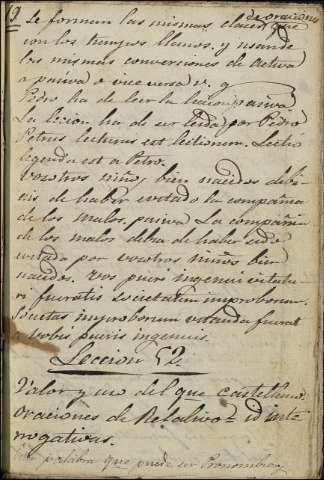 de oraciones
Se forman las mismas clases que
con los tiempos llanos, y usando
las mismas conversiones de activa
a pasiva o vice versa v. g.
Pedro ha de leer la leccion, pasiva
La lecion ha de ser leida por Pedro
Petrus lecturus est lectionem. Lectio
legenda est a Petro.
Vosotros niños bien nacidos debi
eis de haber evitado la compañia
de los malos, pasiva La compañia
de los malos debia de haber sido
evitada por vosotros niños bien
nacidos. Vos pueri ingenui vitatu
ri fueratis societatem improborum.
Societas improborum vitanda fuerat
a vobis pueris ingenuis.
Leccion 52.
Valor y uso del que castellano
oraciones de Relativo é interrogativas.
palabra que puede ser Pronombre